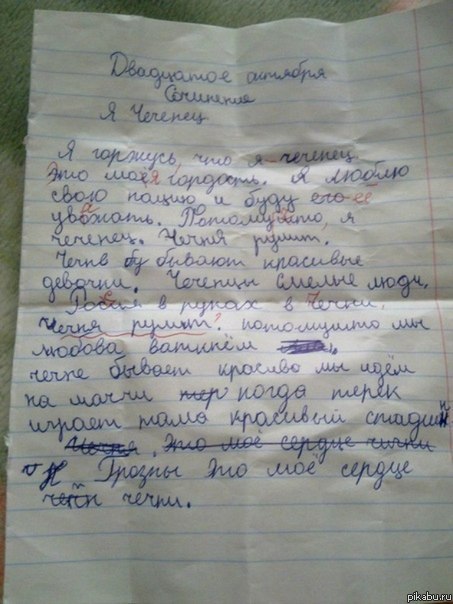 Двадцатое октября
Сочинение
Я Чеченец
Я горжусь, что я - чеченец.
Это моея гордость. Я люблю
свою нацию и буду его ее
уважать. Потомушто, я
чеченец. Чечня рулит.
Чечне бу бывают красивые
девочки. Чеченцы смелые люди.
Россия в руках в Чечни.
Чечня рулит? потомушто мы
любова ваткнём
чечне бывает красиво мы идём
на матчи тер когда терек
играет тама красивый стадиин
Чечня. Это моё сердце чични
Грозны это моё сердце
чечн чечни.
pikabu.ru